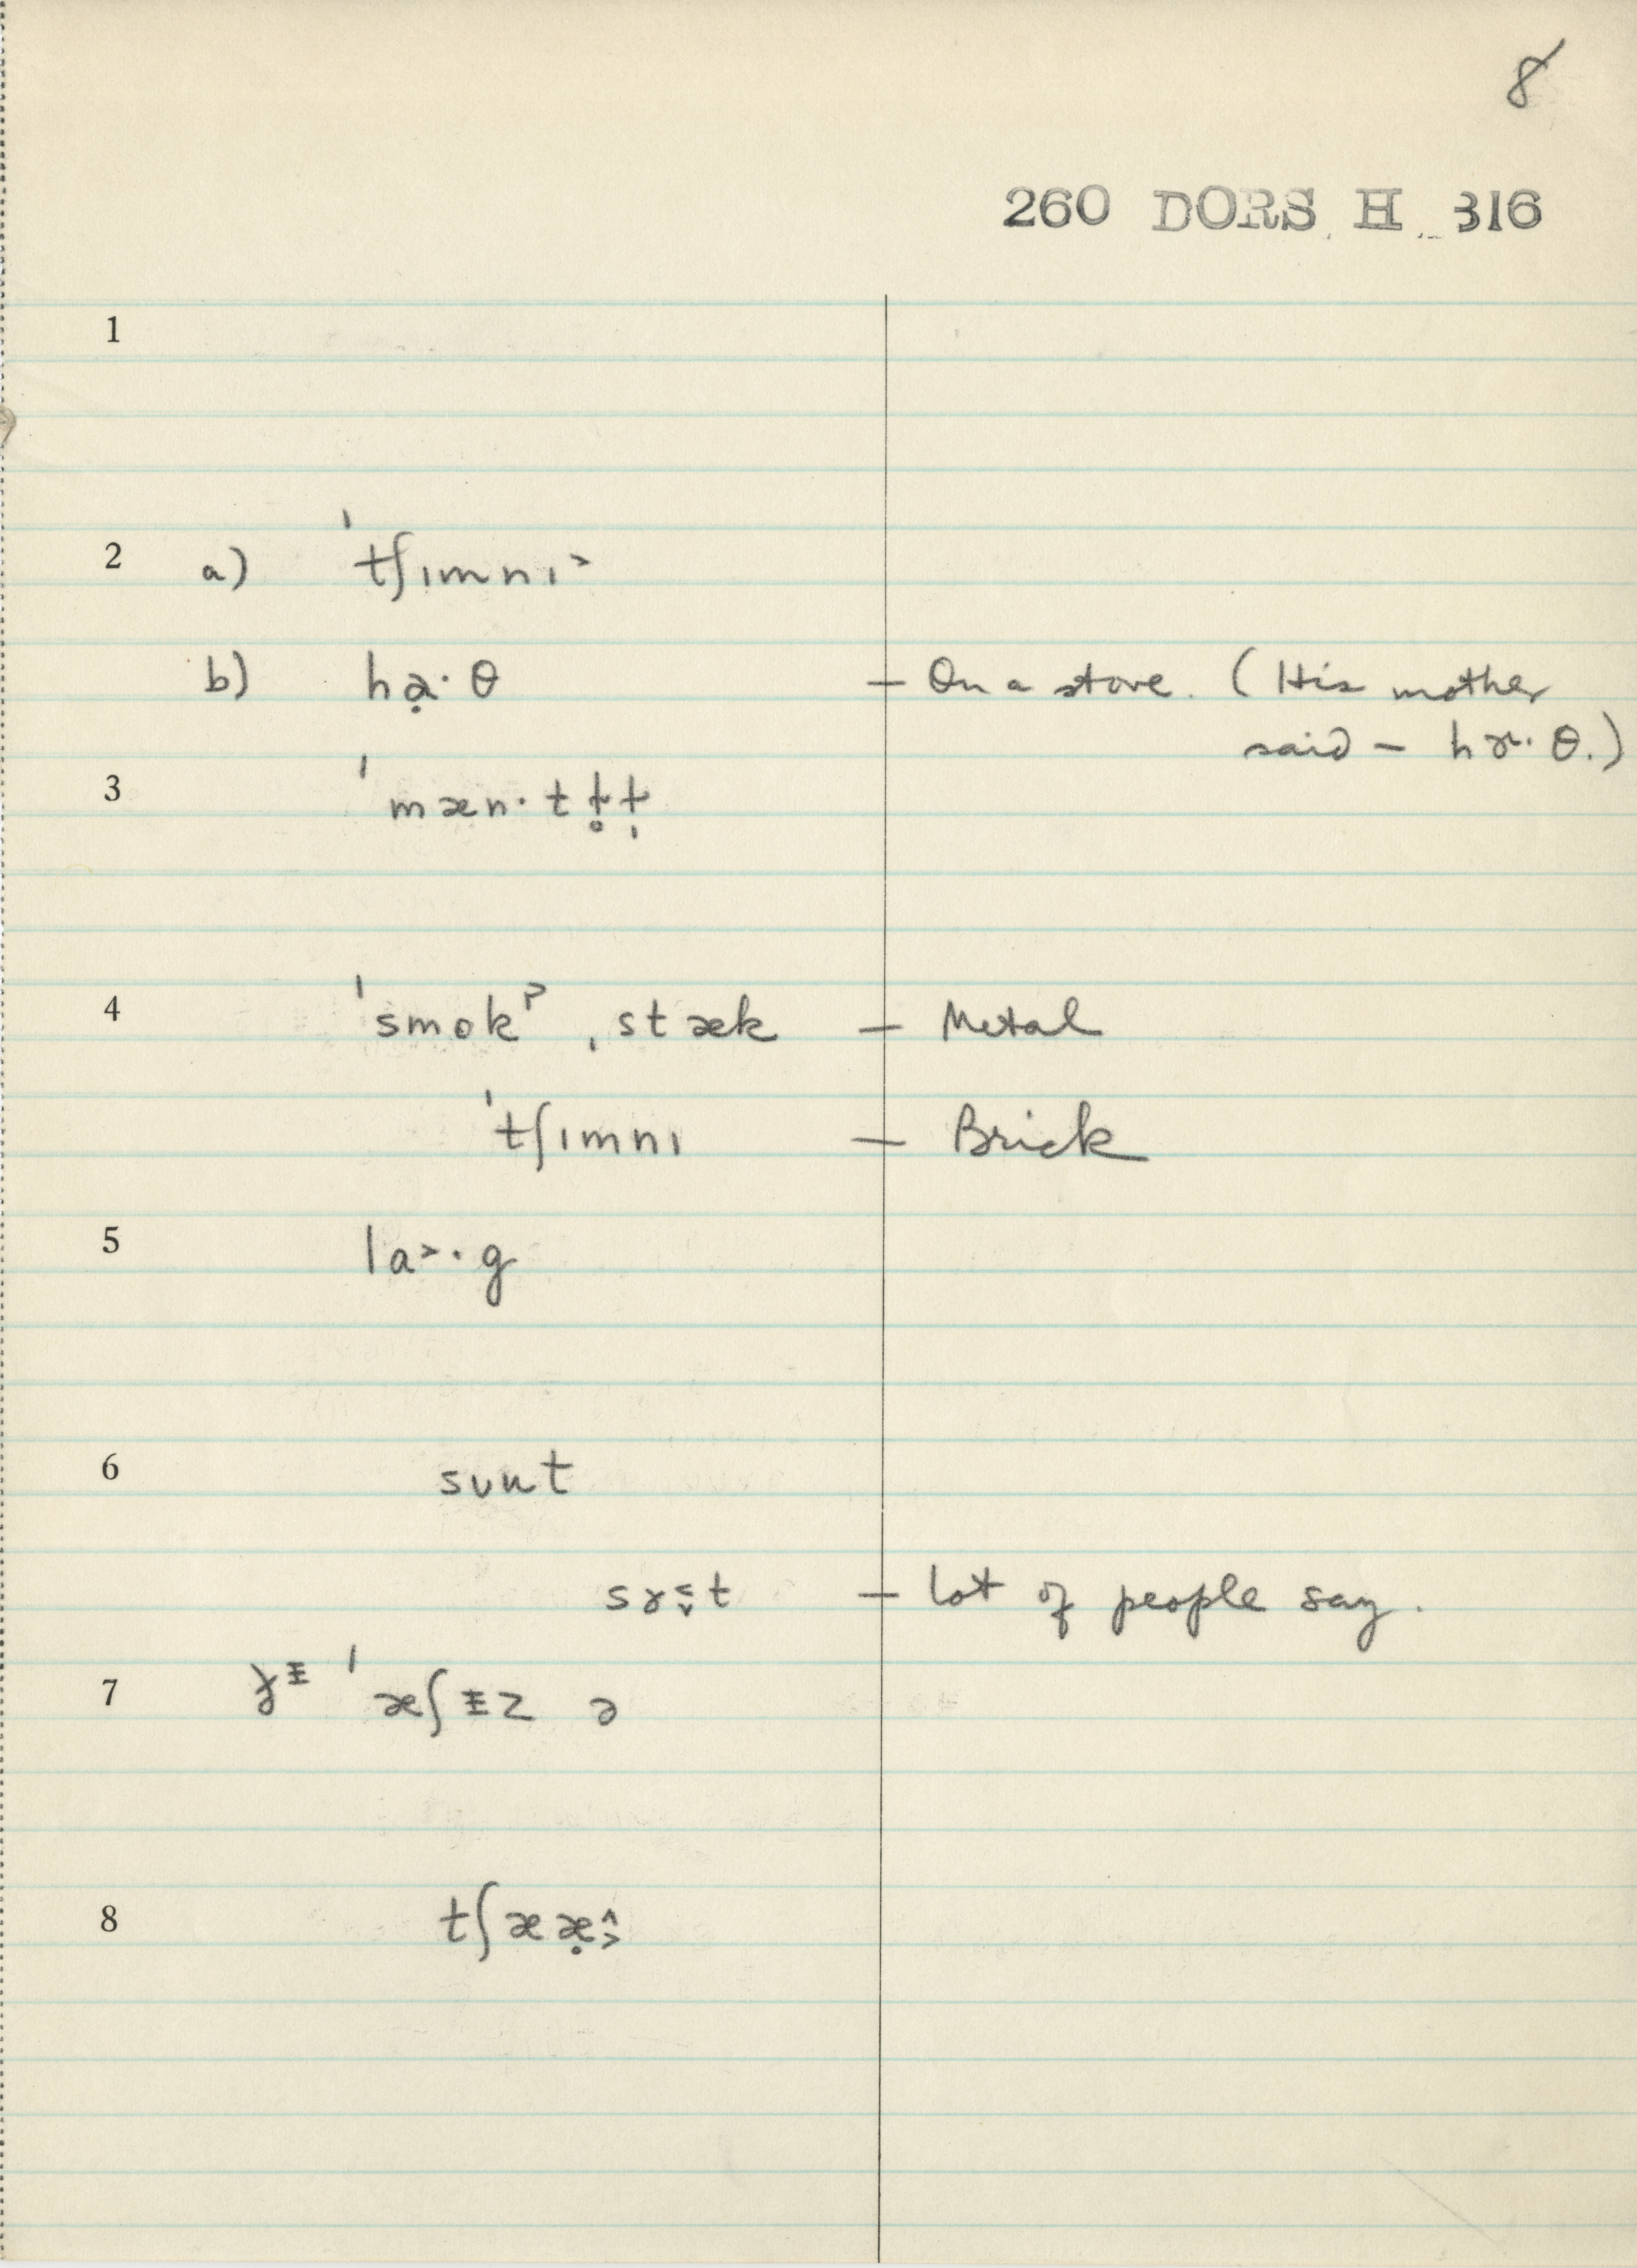 8
260 DORS H 316
1
2 a) ˈtʃɪmnɪ˃
b) hạ·θ — On a stove. (His mother
said — hɤ·θ.)
3 ˈmæn·tɫ̥ɫ̩
4 ˈsmokˀ ˌstæk — Metal
ˈtʃɪmnɪ — Brick
5 la˃·g
6 sʊt
sɤt — lot of people say.
7 ˈæʃɨz ə
8 tʃææ̣